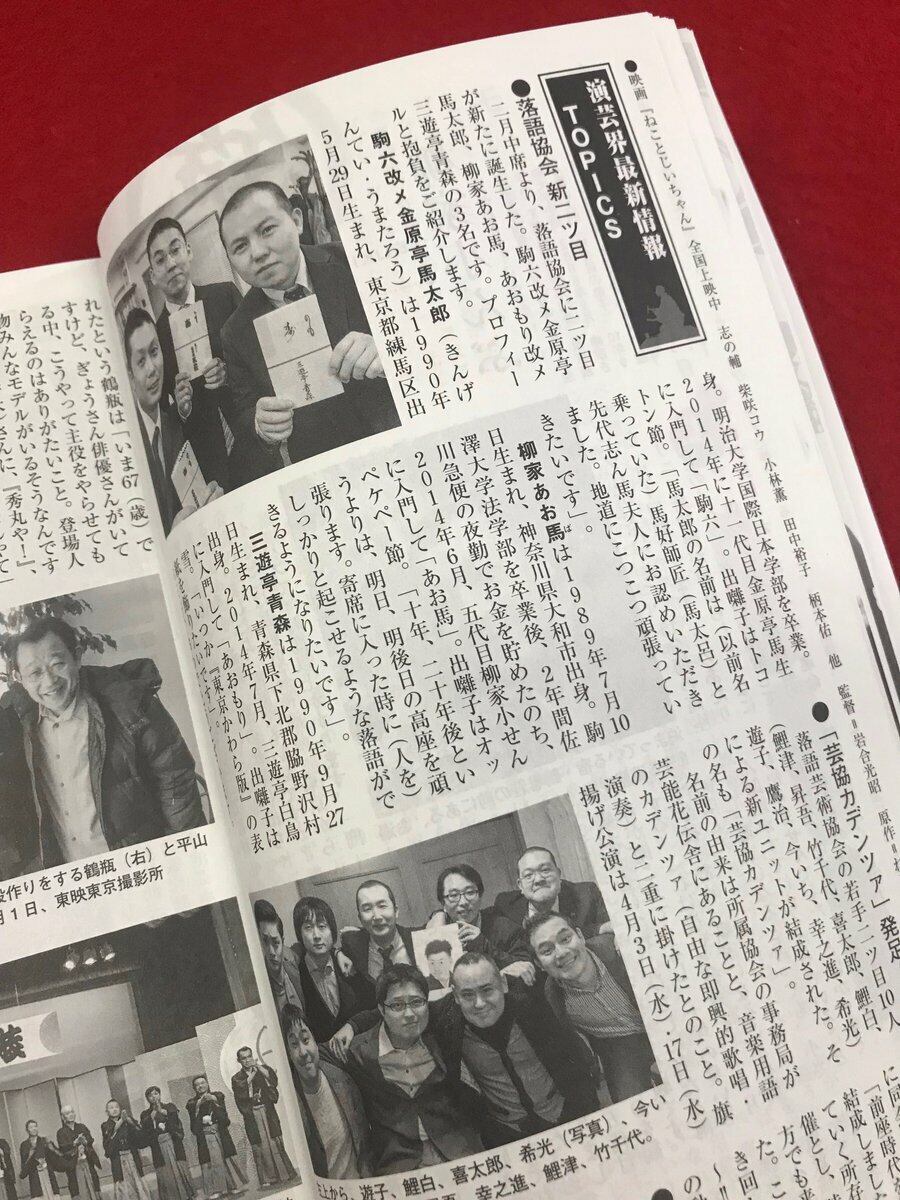 ●映画『ねことじいちゃん』全国上映中 志の輔 柴咲コウ 小林薫 田中裕子 柄本佑 他 監督＝岩合光昭 原作＝ね
演芸界最新情報
TOPICS
●落語協会 新二ツ目
二月中席より、落語協会に二ツ目
が新たに誕生した。駒六改メ金原亭
馬太郎、柳家あお馬、あおもり改メ
三遊亭青森の3名です。プロフィー
ルと抱負をご紹介します。
駒六改メ金原亭馬太郎（きんげ
んてい・うまたろう）は1990年
5月29日生まれ、東京都練馬区出
身。明治大学国際日本学部を卒業。
2014年に十一代目金原亭馬生
に入門して「駒六」。出囃子はトコ
トン節。「馬太郎の名前は（以前名
乗っていた）馬好師匠（馬太呂）と
先代志ん馬夫人にお認めいただき
ました。地道にこつこつ頑張ってい
きたいです」
柳家あお馬は1989年7月10
日生まれ、神奈川県大和市出身。駒
澤大学法学部を卒業後、2年間佐
川急便の夜勤でお金を貯めたのち、
2014年6月、五代目柳家小せん
に入門して「あお馬」。出囃子はオッ
ペケペー節。「十年、二十年後とい
うよりは、明日、明後日の高座を頑
張ります。寄席に入った時に（人を）
しっかりと起こせるような落語がで
きるようになりたいです」。
三遊亭青森は1990年9月27
日生まれ、青森県下北郡脇野沢村
出身。2014年7月、三遊亭白鳥
に入門して「あおもり」。出囃子は
雪。「いつか『東京かわら版』の表
●「芸協カデンツァ」発足
落語芸術協会の若手二ツ目10人
（鯉津、昇吾、今いち、幸之進、希光）
竹千代、喜太郎、鯉白、
遊子、鷹治、
による新ユニットが結成された。そ
の名も「芸協カデンツァ」。
の名前の由来は所属協会の事務局が
芸能花伝舎にあることと、音楽用語
のカデンツァ（自由な即興的歌唱・
演奏）と二重に掛けたとのこと。旗
揚げ公演は4月3日（水）・17日（水）
上から、遊子、鯉白、喜太郎、希光（写真）、今い
幸之進、鯉津、竹千代。
れたという鶴瓶は「いま67（歳）で
すけど、ぎょうさん俳優さんがいて
る中、こうやって主役をやらせても
らえるのはありがたいこと。登場人
物みんなモデルがいるそうなんです
さんに、『秀丸や！』、
役作りをする鶴瓶（右）と平山
月1日、東映東京撮影所